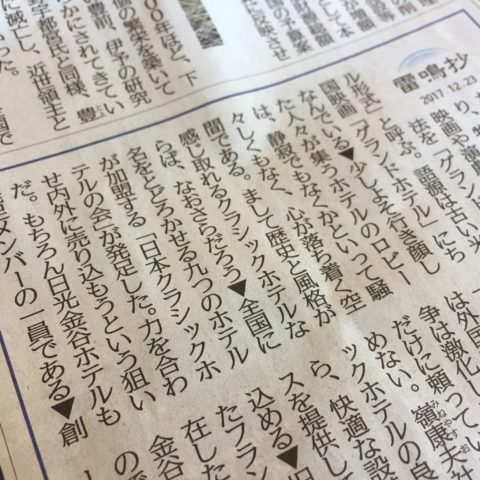 00年ほど、下
の繁栄を築いて
伊予の研究
かにされてきてい
宮氏と同様、豊
し、近世領主と
った。
雷鳴抄
2017.12.23
映画や演
法を「グラン
ル形式」と呼ぶ。語源は古い米
国映画「グランドホテル」にち
なんでいる▼少しよそ行き顔し
た人々が集うホテルのロビー
は、静寂でもなくかといって騒
々しくもなく、心が落ち着く空
間である。まして歴史と風格が
感じ取れるクラシックホテルな
らば、なおさらだろう▼全国に
名をとどろかせる九つのホテル
が加盟する「日本クラシックホ
テルの会」が発足した。力を合わ
せ内外に売り込もうという狙い
だ。もちろん日光金谷ホテルも
メンバーの一員である▼創
は外国
争は激化し
だけに頼ってい
めない。嶺康夫社
ックホテルの良
ら、快適な設
スを提供し
込める▼旧
たフラン
在した
金谷
ので